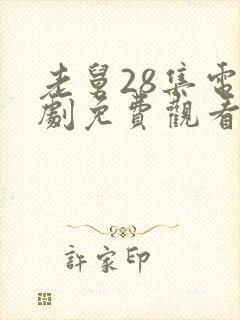 老舅28集電
劇免費觀看
許家印